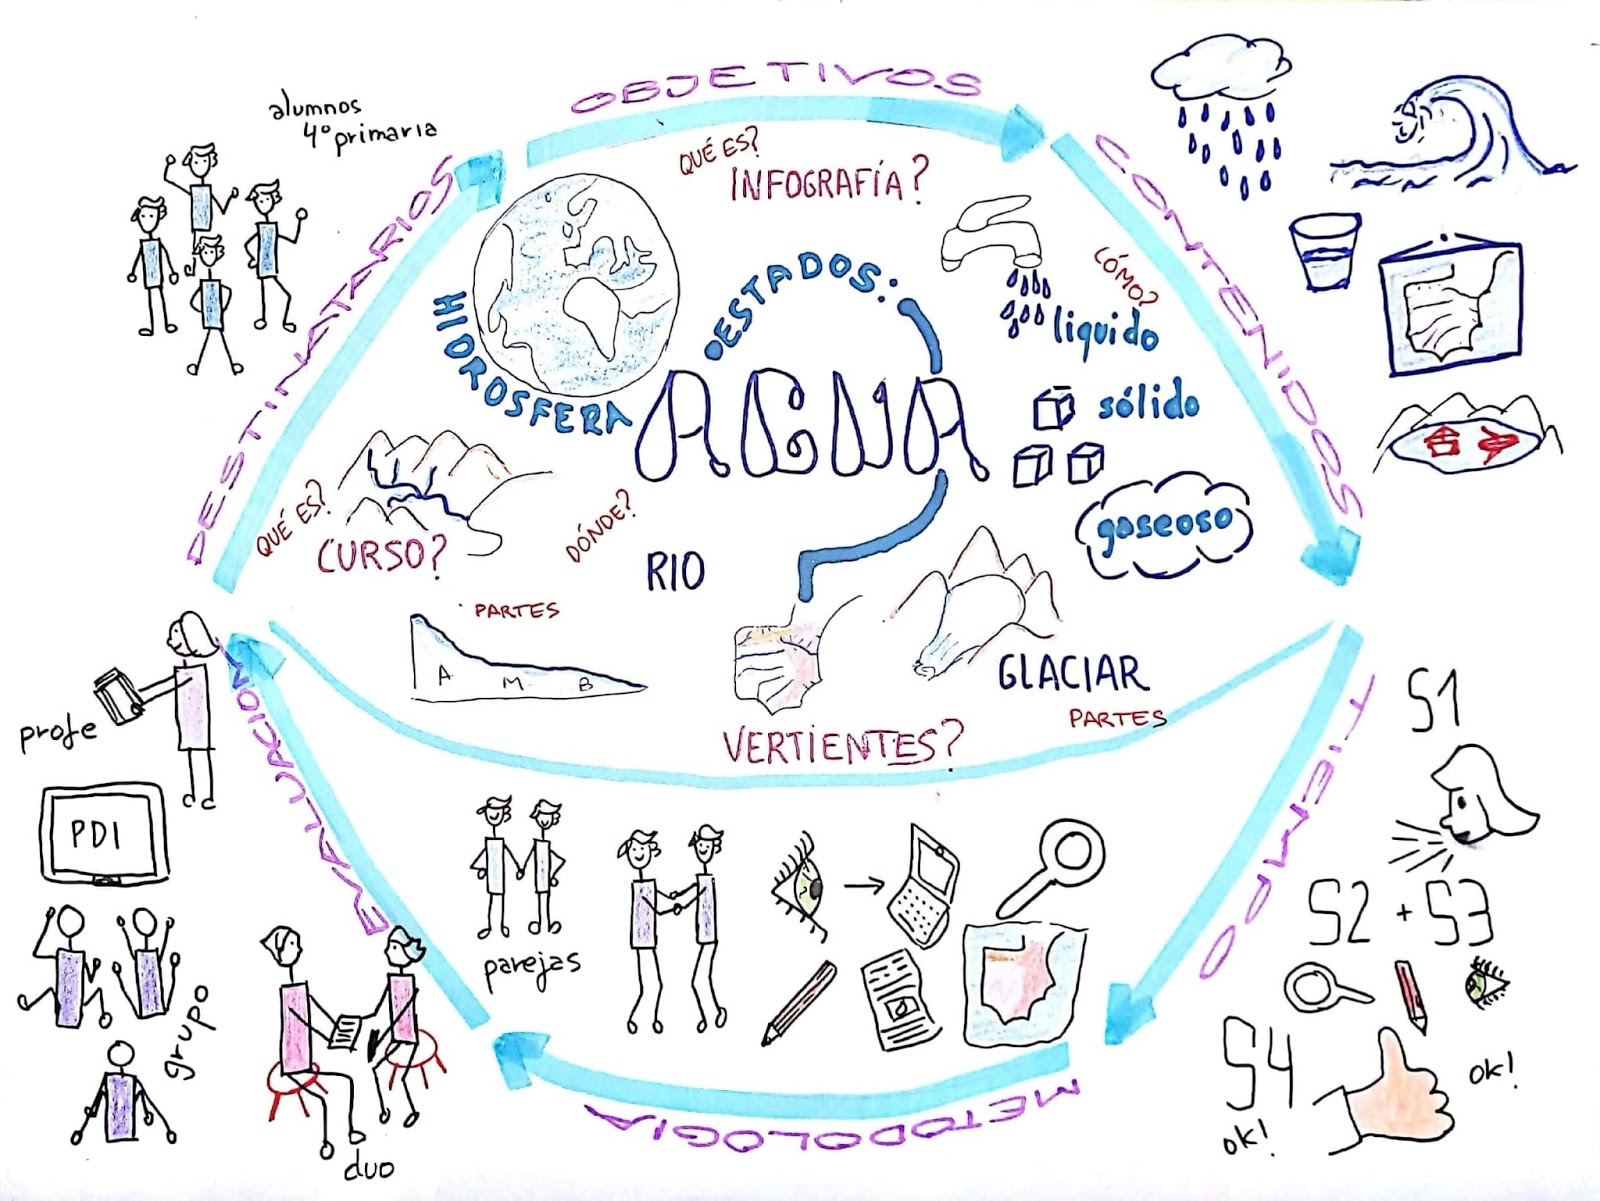 OBJETIVOS
alumnos
4º primaria
DESTINATARIOS
CONTENIDOS
QUÉ ES?
INFOGRAFÍA?
ESTADOS:
HIDROSFERA
AGUA
CÓMO?
liquido
sólido
gaseoso
QUÉ ES?
CURSO?
DÓNDE?
RIO
PARTES
A M B
GLACIAR
PARTES
VERTIENTES?
TIEMPO
S1
S2 + S3
S4
ok!
ok!
METODOLOGIA
parejas
EVALUACION
profe
PDI
grupo
duo